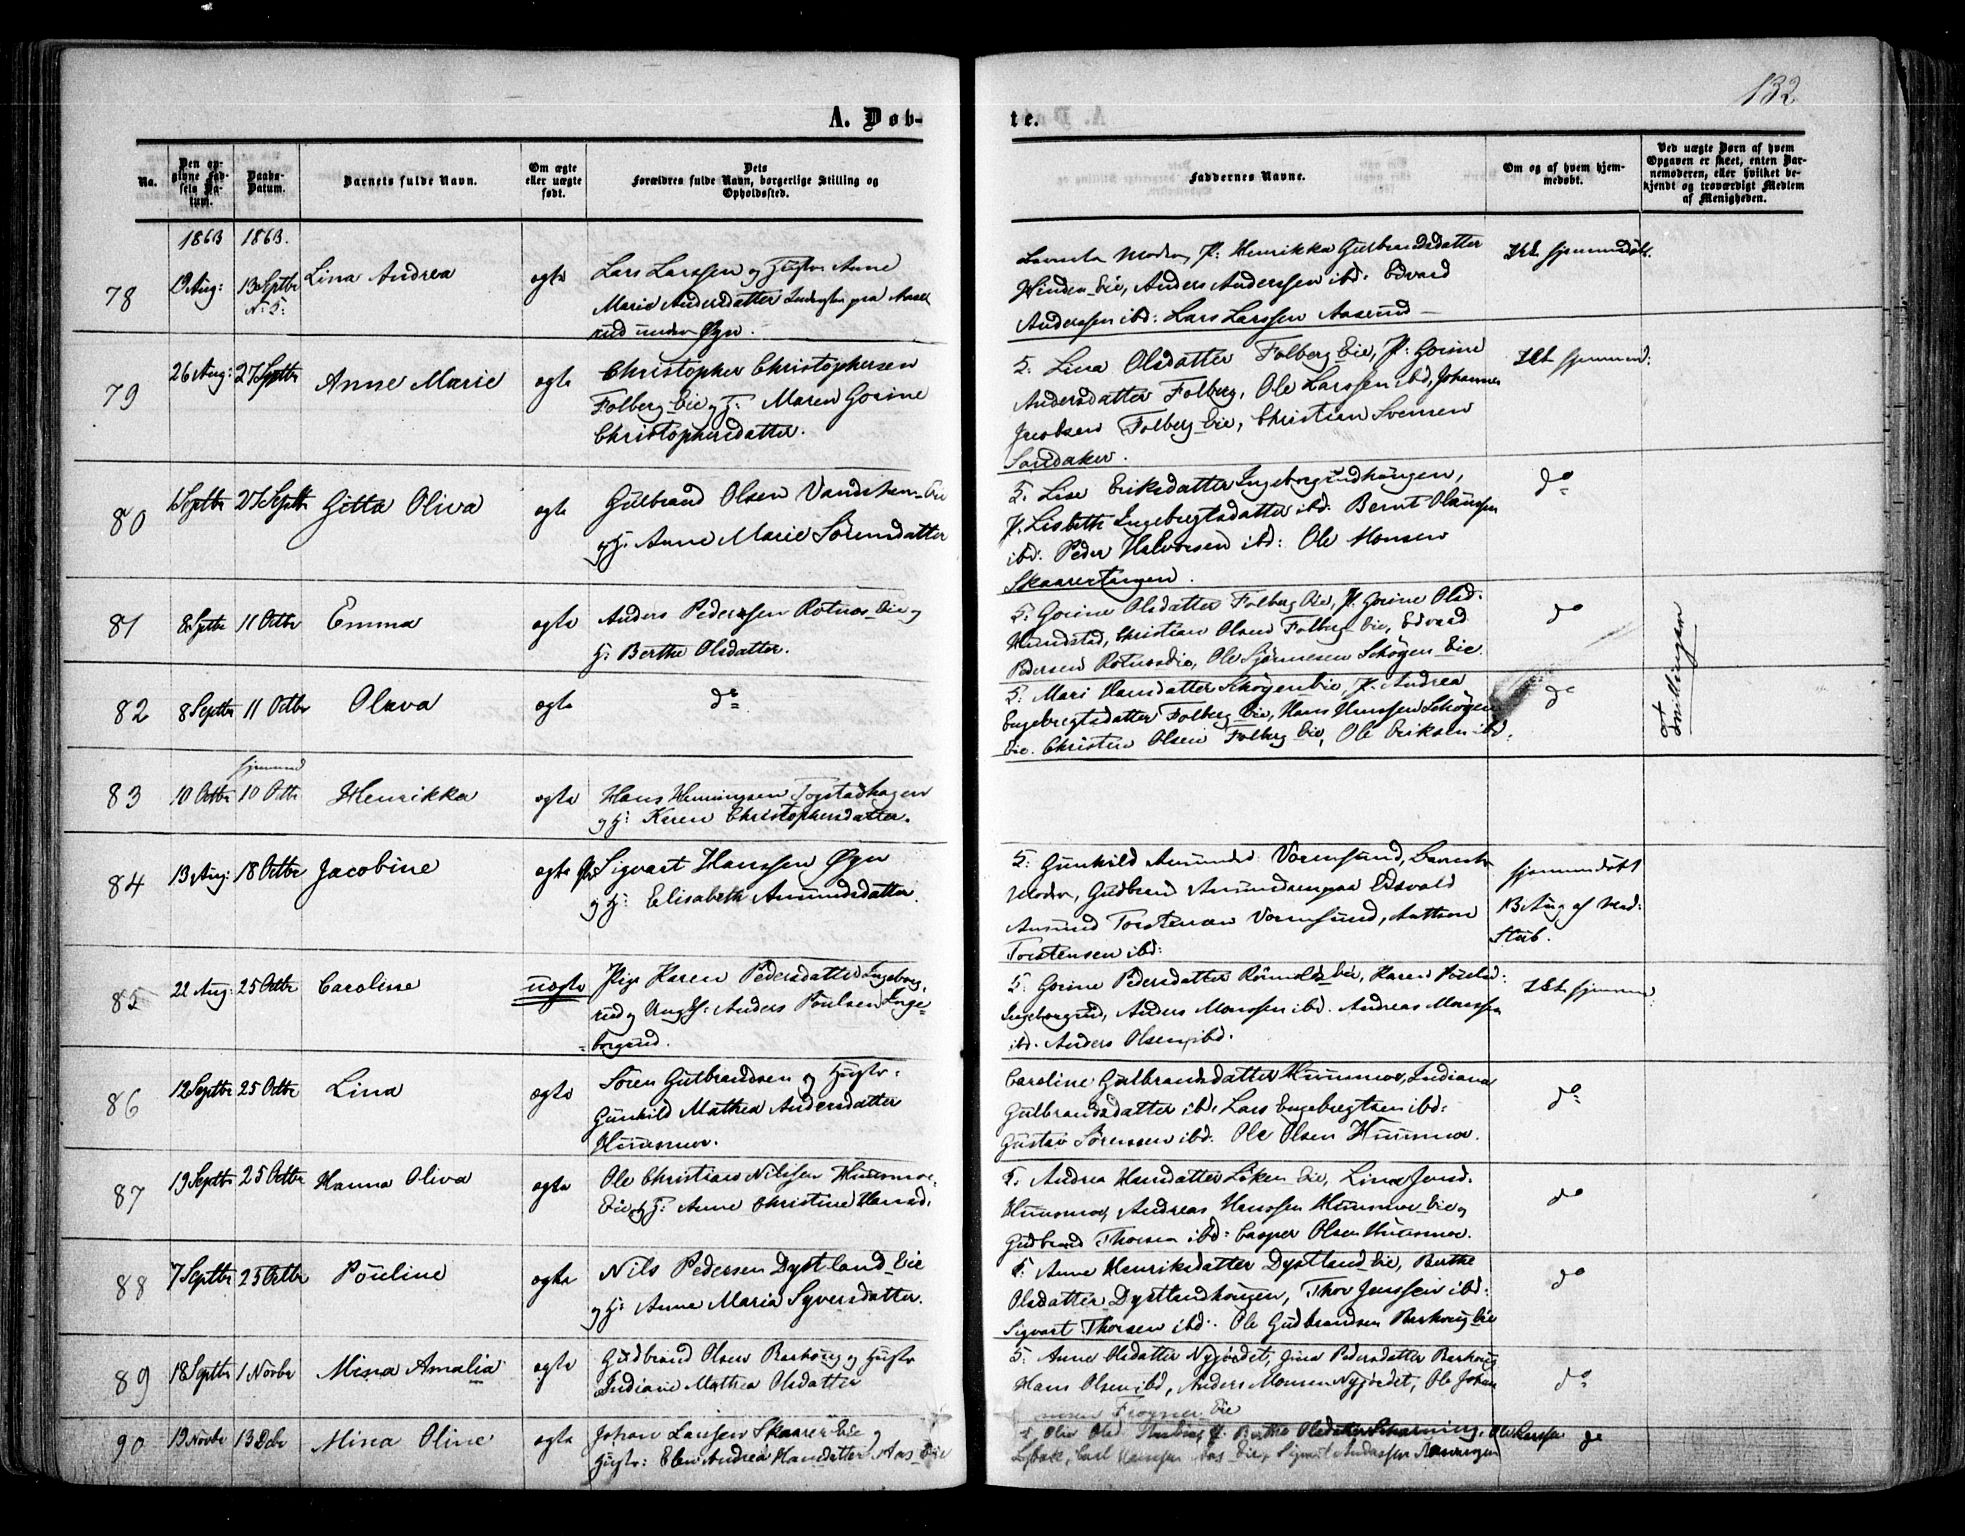 132
A. Døb-
te.
No.
Den op-
givne Fød-
sels Da-
tum.
Daabs-
Datum.
Barnets fulde Navn.
Om ægte
eller uægte
født.
Dets
Forældres fulde Navn, borgerlige Stilling og
Opholdssted.
Faddernes Navne.
Om og af hvem hjem-
medøbt.
Ved uægte Børn af hvem
Opgaven er skeet, enten Bar-
nemoderen, eller hvilket be-
kjendt og troværdigt Medlem
af Menigheden.
1863 1863.
78 13 Septbr Lina Andrea ægte Lars Larssen og Hustr Anne
N: 5:
Marie Andersdatter
under Øgn.
Barnets Moder, P: Henrikka Gulbrandsdatter
Eie, Anders Anderssen ibd: Edvard
Anderssen ibd: Lars Larssen Aaserud
79 26 Aug: 27 Septbr Anne Marie ægte Christopher Christophersen
Folberg Eie og H: Maren Gorine
Christophersdatter.
S: Lina Olsdatter Folberg Eie, P: Gorine
Andersdatter Folberg, Ole Larssen ibd, Johannes
Jacobsen Folberg Eie, Christian Svensen
Sandaker.
80 27 Septbr Gitta Oliva ægte Gulbrand Olsen
og H: Anne Marie Sørensdatter
S: Lise Eriksdatter Ingeborgrudhaugen,
P. Lisbeth Ingebregtsdatter ibd: Bernt
ibd: Peder Halvorsen ibd: Ole Monsen
do
81 8 Septbr 11 Octbr Emma ægte Anders Pederssen Rotnes Eie og
H: Berthe Olsdatter.
S: Gorine Olsdatter Folberg Eie, P. Gorine Olsd.
Hundstad, Christian Olsen Folberg Eie, Edvard
Pedersen Eie.
do
82 8 Septbr 11 Octbr Olava ægte do
S: Mari Hansdatter Skøgen Eie, P. Andrea
Engebregtsdatter Folberg Eie, Hans Hanssen Skøgen
Eie. Christen Olsen Folberg Eie, Ole Eriksen ibd.
do
Tvillinger
hjemmed
83 10 Octbr 10 Octb Henrikka ægte Hans Henningsen Togstadhagen
og H: Karen Christophersdatter.
84 13 Aug: 18 Octbr Jacobine ægte Sigvart Hanssen Øgn
og H: Elisabeth Amundsdatter.
S: Gunhild Amundsd. Vormsund, Barnets
Moder, Gudbrand Eidsvold
Amund Torstensen Vormsund,
Torstensen ibd:
hjemmedøbt
13 Aug af Mad:
Stub.
85 22 Aug: 25 Octbr Caroline uægte Pige Karen Pedersdatter Ingeborg-
rud og Ungk: Anders Poulsen Inge-
borgrud.
S: Gorine Pedersdatter
Ingeborgrud, Anders Monssen ibd. Andreas Monssen
ibd. Anders Olsen ibd.
86 12 Septbr 25 Octbr Lina ægte Søren Gulbrandsen og Hustr:
Gunhild Mathea Andersdatter
Huusmoe.
Caroline Gulbrandsdatter Huusmoe, Indiana
Gulbrandsdatter ibd: Lars Engebregtsen ibd:
Gustav Sørenssen ibd. Ole Olsen Huusmoe.
do
87 19 Septbr 25 Octbr Hanna Oliva ægte Ole Christian Nilssen Huusmoe-
Eie og H: Anne Christine Hansd.
S. Andrea Hansdatter Løken Eie, Lina Jensd.
Huusmoe, Andreas Hanssen Huusmoe Eie og
Gudbrand Thorsen ibd: Casper Olsen Huusmoe.
do
88 7 Septbr 25 Octbr Pouline ægte Nils Pedersen Dystland Eie
og H: Anne Maria Syversdatter.
S. Anne Henriksdatter Dystland Eie, Berthe
Olsdatter Dystlandhougen, Thor Jenssen ibd:
Sigvart Thorsen ibd. Ole Gudbrandsen Eie
do
89 18 Septbr 1 Novbr Mina Amalia ægte Gudbrand Olsen og Hustr
Indiane Mathea Olsdatter
S: Anne Olsdatter Nyjordet, Pedersdatter
Hans Olsen ibd, Anders Monsen Nyjordet, Ole Johan
Eie
do
90 19 Novbr 13 Debr Mina Oline ægte Johan Larssen Skaarer Eie
Hustr: Elen Andrea Hansdatter Aas Eie
Ole Larssen
Carl Hanssen Aas Eie,
do